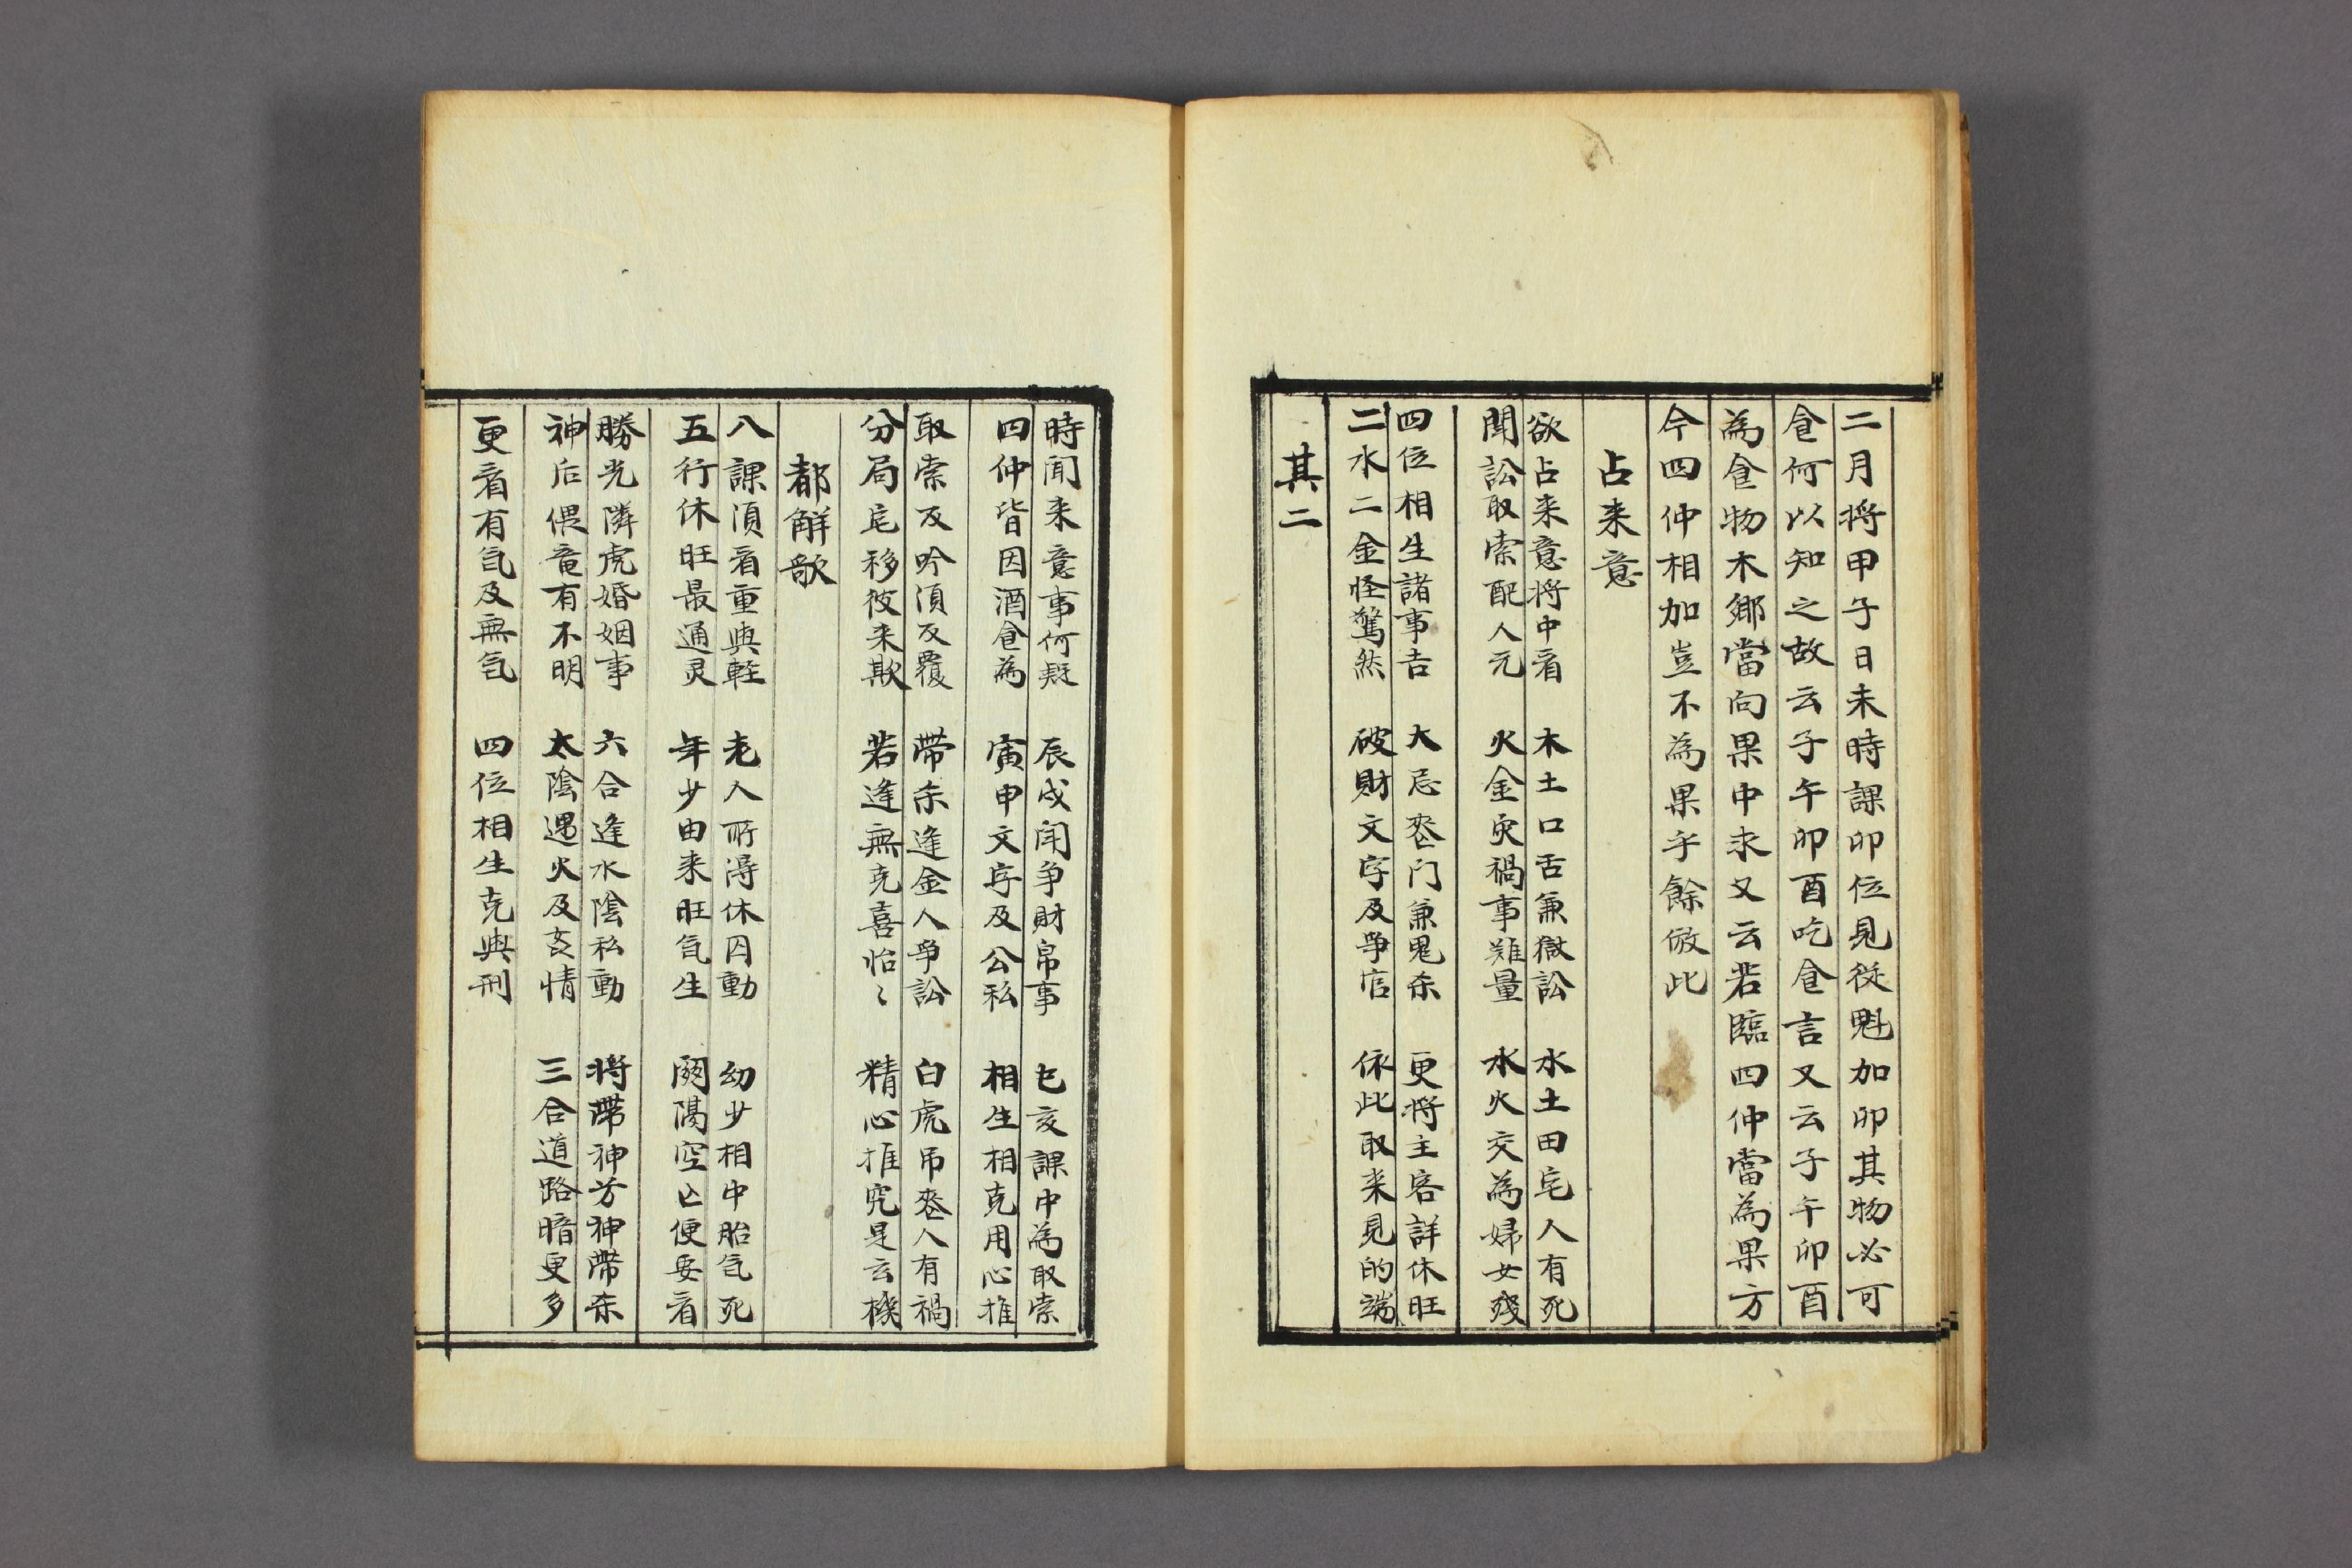 二月将甲子日未時課卯位見従魁加卯其物必可
食何以知之故云子午卯酉吃食言又云子午卯酉
為食物木鄉當向果中求又云若臨四仲當為果方
今四仲相加豈不為果乎餘倣此
占来意
欲占来意将中看 木土口舌兼獄訟 水土田宅人有死
聞訟取索配人元 火金灾禍事難量 水火交為婦女殘
四位相生諸事吉 大忌丧门兼鬼杀 更将主客詳休旺
二水二金怪驚然 破財文字及爭官 依此取来見的端
其二
時聞来意事何疑 辰戌鬥争財帛事 巳亥課中為取索
四仲皆因酒食為 寅申文字及公私 相生相克用心推
取索反吟須反覆 帶杀逢金人爭訟 白虎吊丧人有禍
分局宅移彼来欺 若逢無克喜怡〻 精心推究是玄機
都觧歌
八課湏看重與輊 老人所淂休囚動 幼少相中胎气死
五行休旺最通灵 年少由来旺气生 関隔空亡便要看
勝光隣虎婚姻事 六合逢水陰私動 将帶神芳神帶杀
神后偎竜有不明 太陰遇火及亥情 三合道路暗更多
更看有气及無气 四位相生克與刑